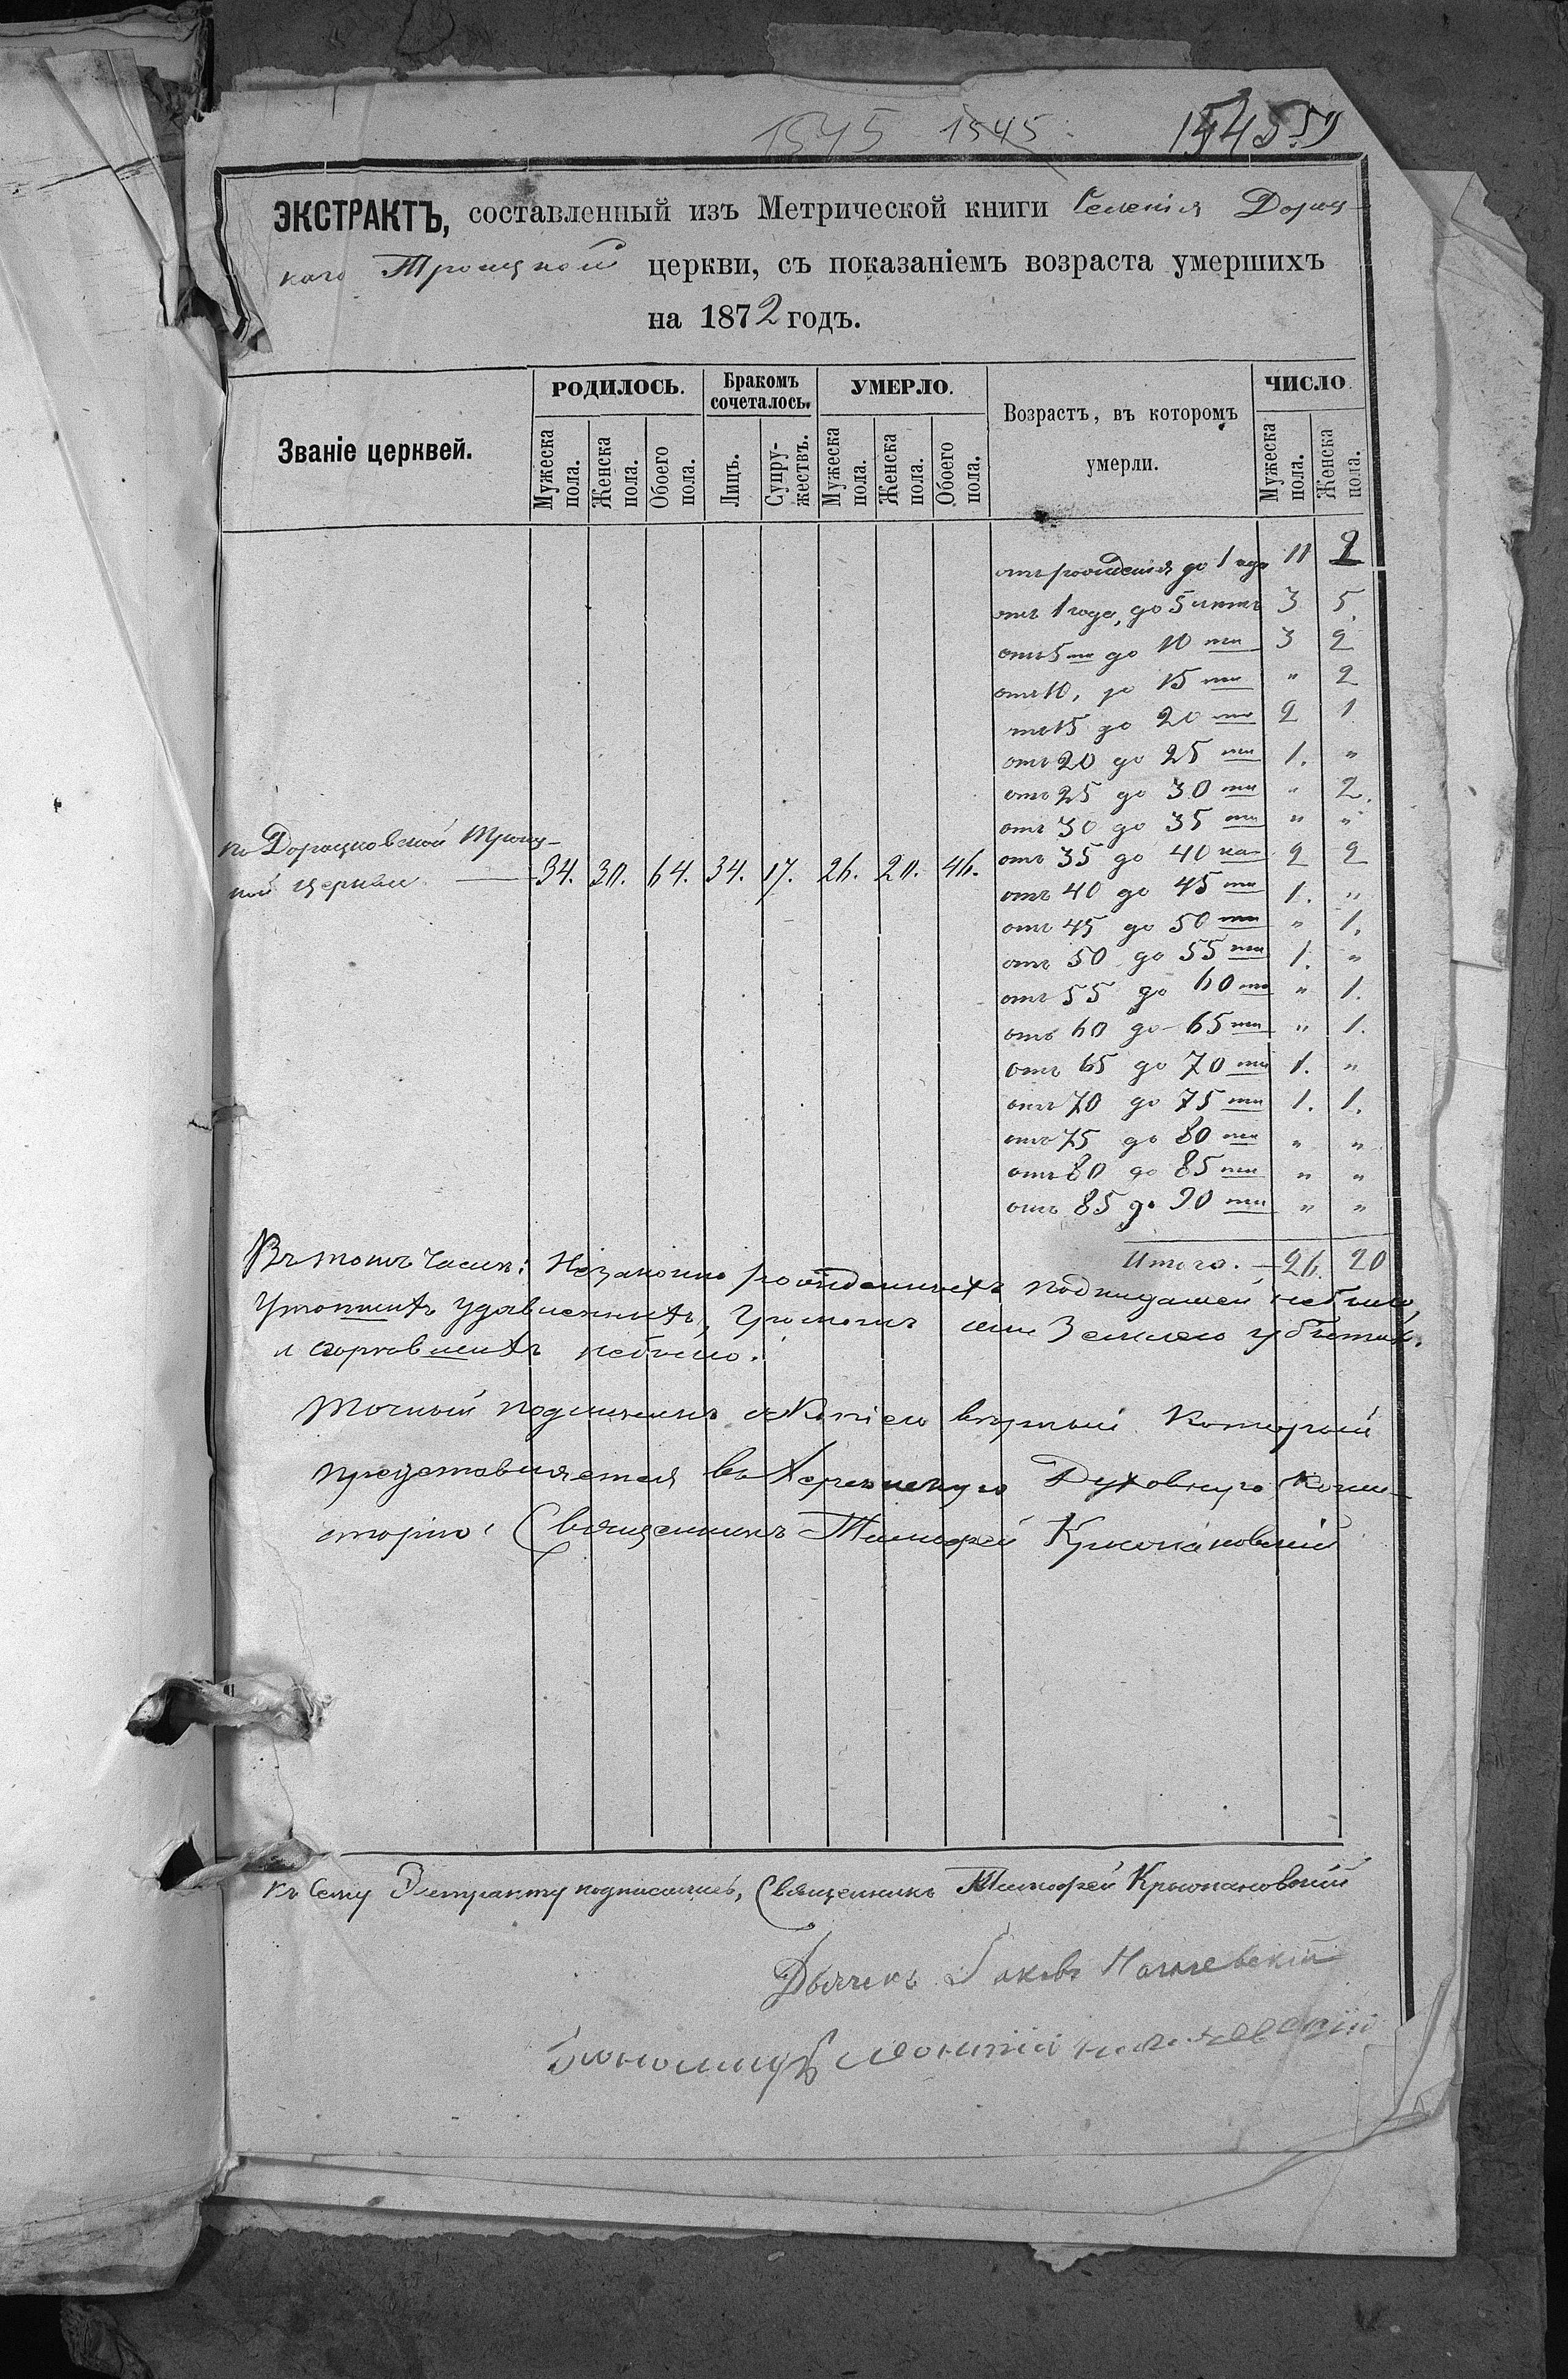 1545 1545 1545 59
ЭКСТРАКТЪ, составленный изъ Метрической книги Селенія Дороц-
каго Троицкой церкви, съ показаніемъ возраста умершихъ
на 1872 годъ.
Званіе церквей.
РОДИЛОСЬ.
Мужеска пола.
Женска пола.
Обоего пола.
Бракомъ сочеталось.
Лицъ.
Супружествъ.
УМЕРЛО.
Мужеска пола.
Женска пола.
Обоего пола.
Возрастъ, въ которомъ
умерли.
ЧИСЛО
Мужеска пола.
Женска пола.
отъ рожденія до 1 года 11 2
отъ 1 года, до 5 летъ 3 5.
отъ 5 ти до 10 ти 3 2
отъ 10, до 15 ти " 2
отъ 15 до 20 ти 2 1
отъ 20 до 25 ти 1. "
отъ 25 до 30 ти " 2.
отъ 30 до 35 ти " "
отъ 35 до 40 ка 2 2
отъ 40 до 45 ти 1. "
отъ 45 до 50 ти " 1.
отъ 50 до 55 ти 1. "
отъ 55 до 60 ти " 1.
отъ 60 до 65 ти " 1.
отъ 65 до 70 ти 1. "
отъ 70 до 75 ти 1. 1.
отъ 75 до 80 ти " "
отъ 80 до 85 ти " "
отъ 85 до 90 ти " "
По Дороцковской Троиц-
кой церкви 34. 30. 64. 34. 17. 26. 20. 46.
Итого. 26. 20
Въ томъ числе: Незаконно рожденныхъ подкидышей небыло,
Утопшихъ удавленныхъ, Громомъ или Землею убитыхъ.
и сгоревшихъ небыло.
Точный подлинникъ съ Копіею верный Который
представляется въ Херсонскую Духовную Конси-
сторію: Священникъ Тимофей Крыжановскій
Къ Сему Экстракту подписались, Священникъ Тимофей Крыжановскій
Дьячекъ Яковъ
Пономарь Леонтій